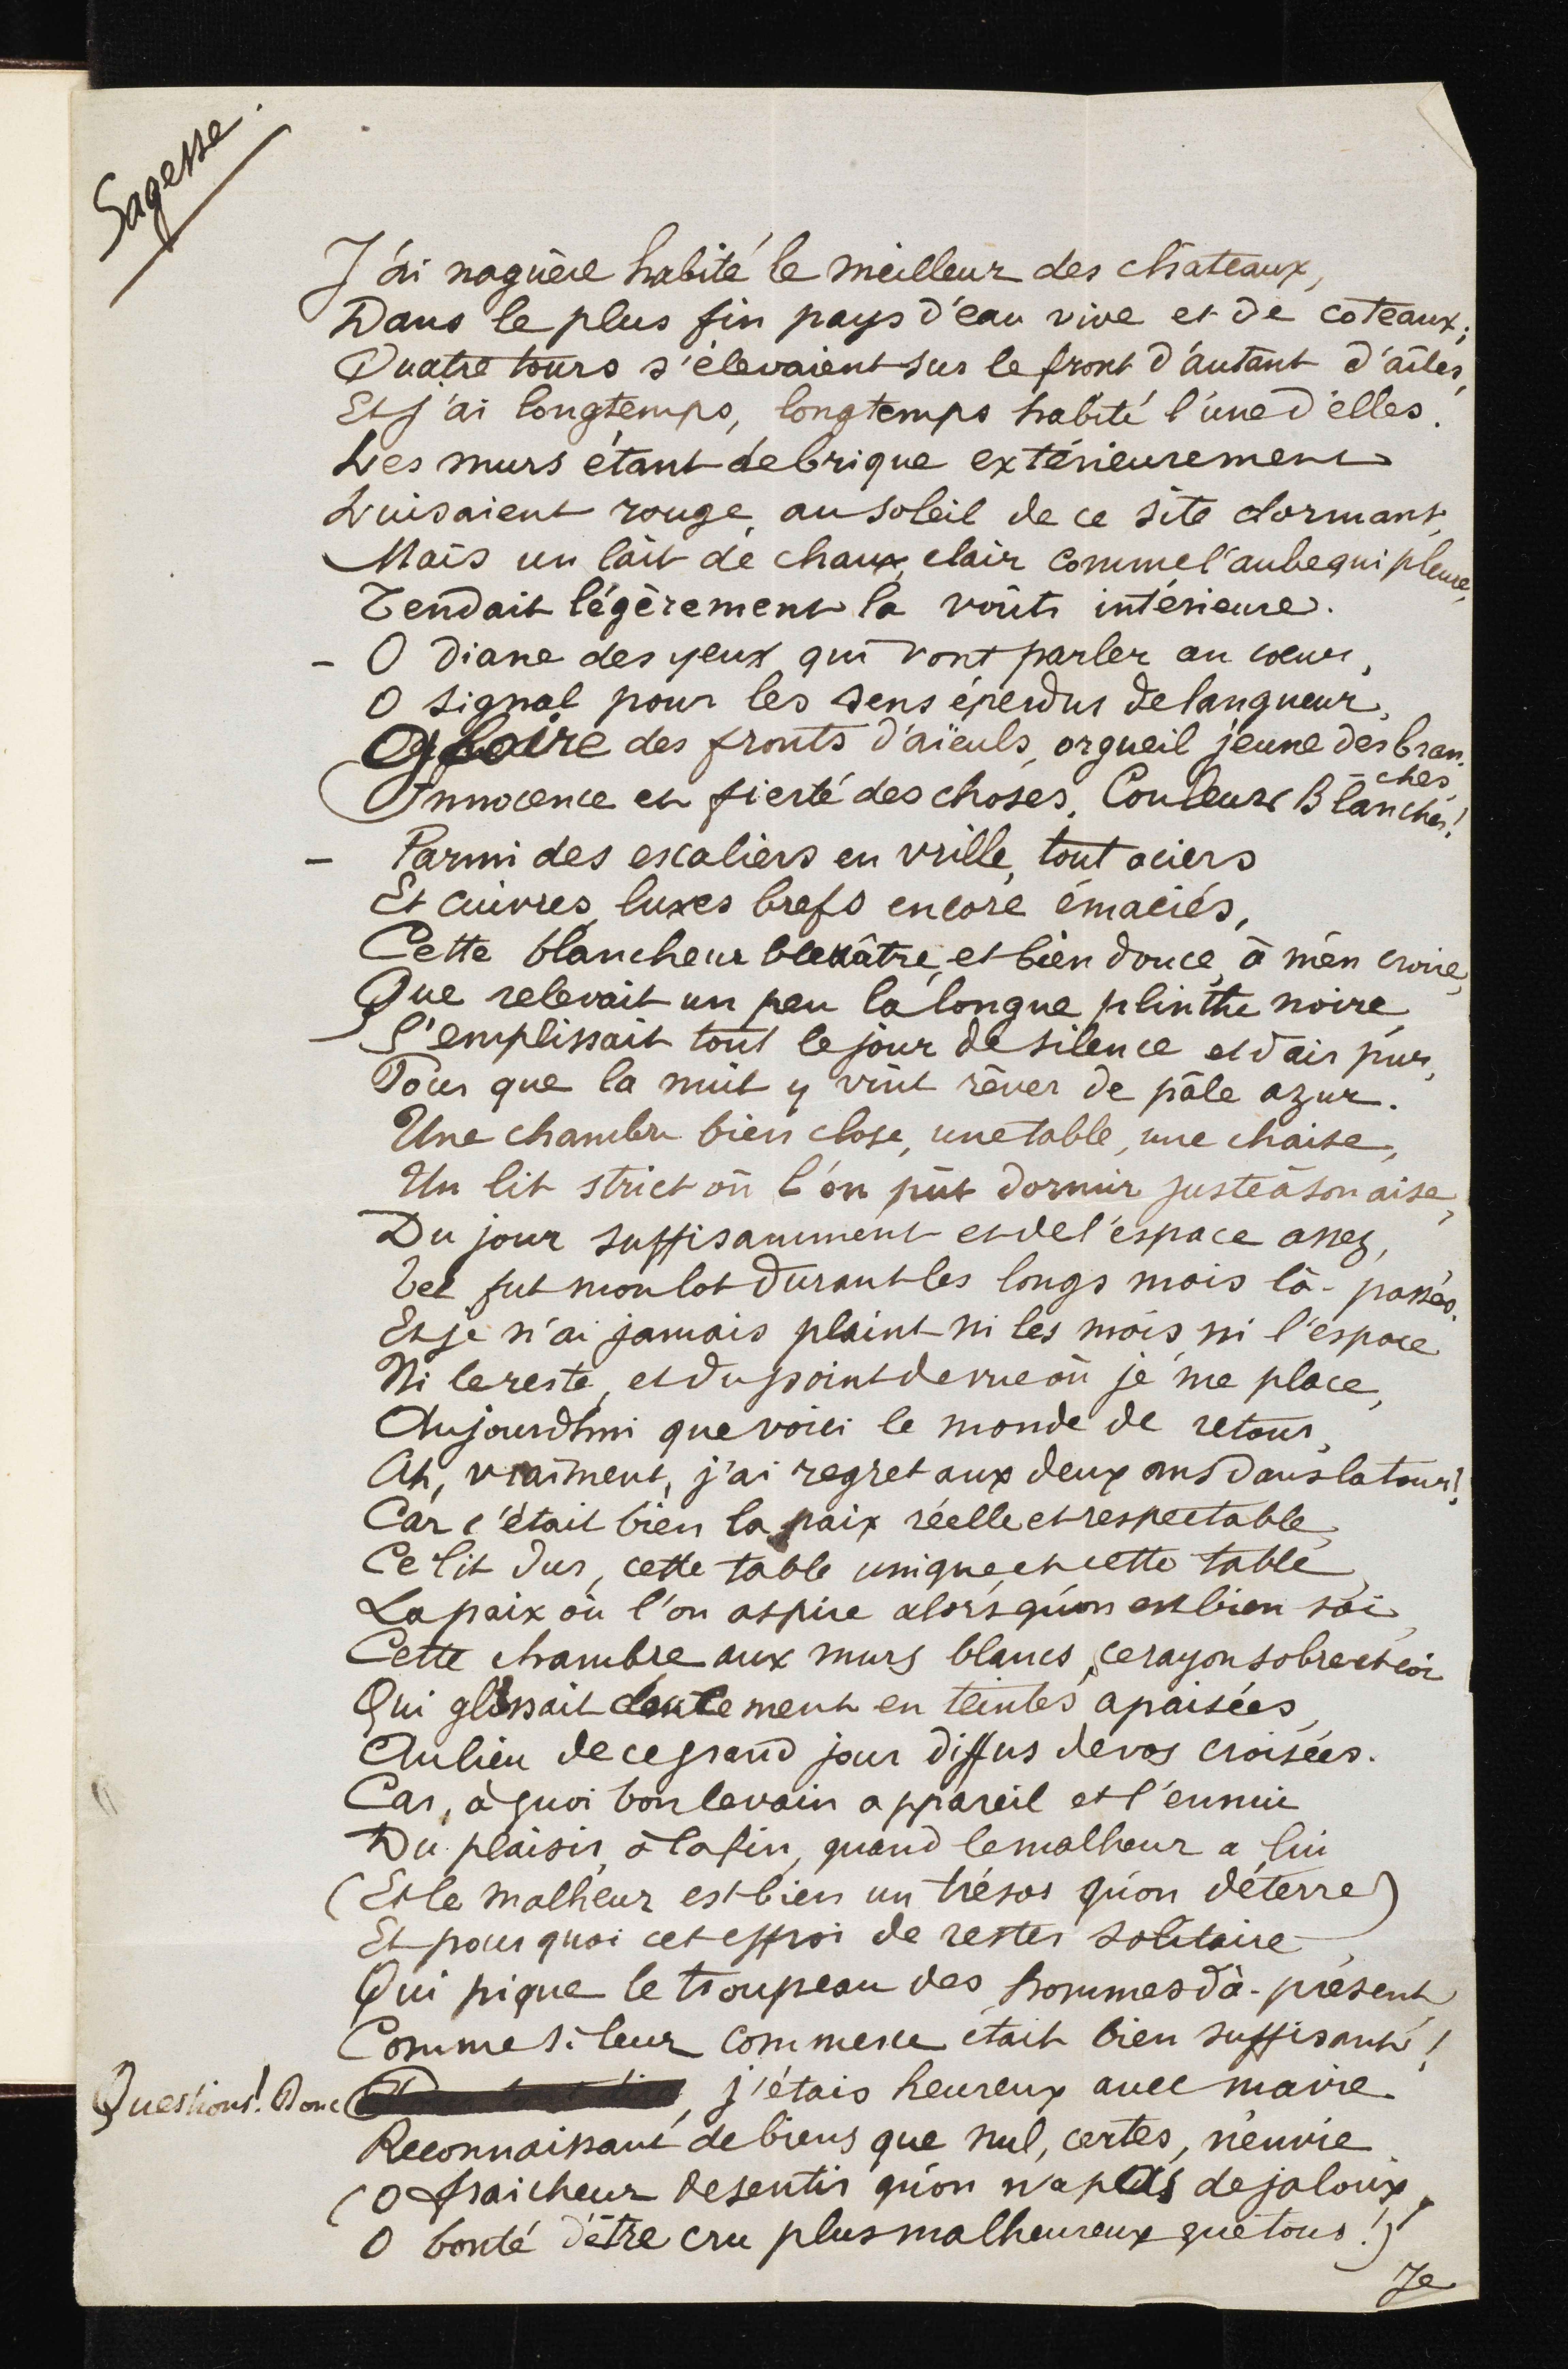 Sagesse.
J'ai naguère habité le meilleur des châteaux,
Dans le plus fin pays d'eau vive et de coteaux;
Quatre tours s'élevaient sur le front d'autant d'ailes,
Et j'ai longtemps, longtemps habité l'une d'elles.
Les murs étant de brique extérieurement
Luisaient rouge au soleil de ce site dormant,
Mais un lait de chaux, clair comme l'aube qui pleure,
Tendait légèrement la voûte intérieure.
- O diane des yeux qui vont parler au cœur,
O signal pour les sens éperdus de langueur,
Gloire des fronts d'aïeuls, orgueil jeune des bran-
ches,
Innocence et fierté des choses, Couleurs Blanches!
- Parmi des escaliers en vrille, tout aciers
Et cuivres, luxes brefs encore émaciés,
Cette blancheur bleuâtre, et bien douce, à m'en croire,
Que relevait un peu la longue plinthe noire,
S'emplissait tout le jour de silence et d'air pur,
Pour que la nuit y vînt rêver de pâle azur.
Une chambre bien close, une table, une chaise,
Un lit strict où l'on pût dormir juste à son aise,
Du jour suffisamment et de l'espace assez,
Tel fut mon lot durant les longs mois là-passés.
Et je n'ai jamais plaint ni les mois ni l'espace
Ni le reste, et du point de vue où je me place,
Aujourd'hui que voici le monde de retour,
Ah, vraiment, j'ai regret aux deux ans dans la tour!
Car c'était bien la paix réelle et respectable,
Ce lit dur, cette table unique et cette table,
La paix où l'on aspire alors qu'on est bien soi,
Cette chambre aux murs blancs, ce rayon sobre et coi
Qui glissait lentement en teintes apaisées,
Au lieu de ce grand jour diffus de vos croisées.
Car, à quoi bon le vain appareil et l'ennui
Du plaisir, à la fin, quand le malheur a lui
(Et le malheur est bien un trésor qu'on déterre)
Et pourquoi cet effroi de rester solitaire,
Qui pique le troupeau des hommes d'à-présent,
Comme si leur commerce était bien suffisant!
Questions! Donc, j'étais heureux avec ma vie
Reconnaissant de biens que nul, certes, n'envie
(O fraîcheur de sentir qu'on n'a pas de jaloux,
O bonté d'être cru plus malheureux que tous!)
Je